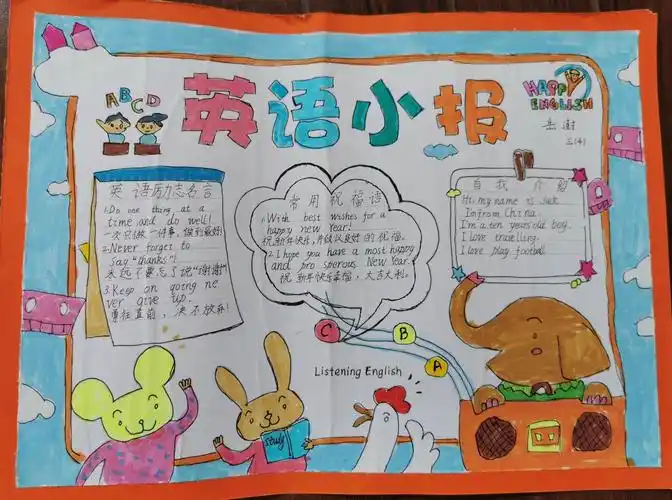 ABCD
英语小报
HAPPY
ENGLISH
五(4)
英语励志名言
1.Do one thing at a
time and do well!
一次只做一件事，做到最好!
2.Never forget to
say "thanks"!
永远不要忘了说"谢谢"!
3.Keep on going ne
ver give up.
勇往直前，决不放弃!
常用祝福语
1.With best wishes for a
happy new year!
祝新年快乐，并致以良好的祝福。
2.I hope you have a most happy
and prosperous New Year.
祝新年快乐幸福，大吉大利。
自我介绍
Hi, my name is Jack
Im from China.
I'm a ten years old boy.
I love travelling.
I love play football.
C
B
A
Listening English
study